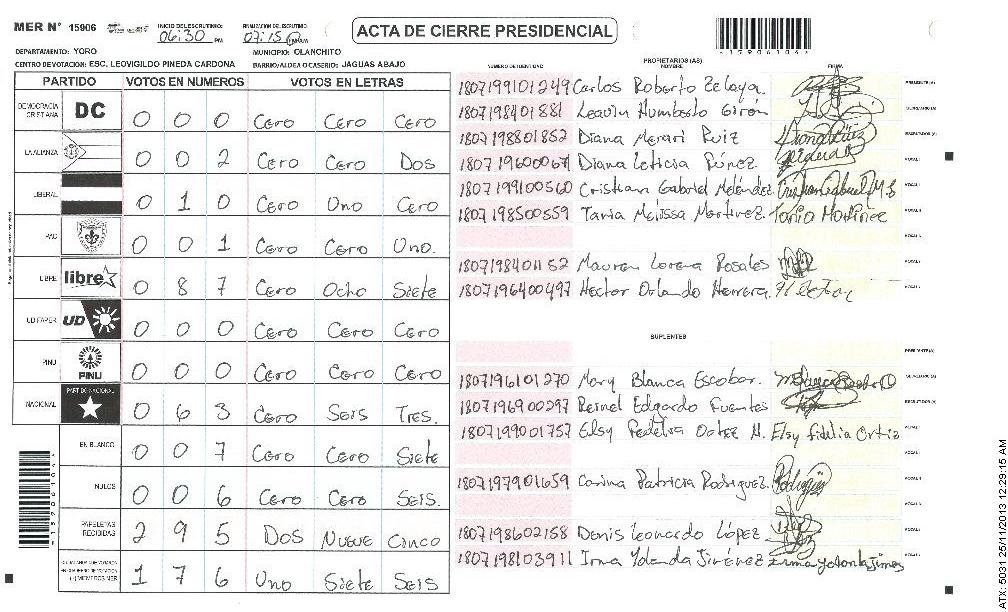 MER Nº 15906
INICIO DEL ESCRUTINIO: 06:30 PM
FINALIZACION DEL ESCRUTINIO 07:15 PM
ACTA DE CIERRE PRESIDENCIAL
15906104
DEPARTAMENTO: YORO
MUNICIPIO: OLANCHITO
CENTRO DE VOTACION: ESC. LEOVIGILDO PINEDA CARDONA
BARRIO/ALDEA O CASERIO: JAGUAS ABAJO
PARTIDO VOTOS EN NUMEROS VOTOS EN LETRAS
DEMOCRACIA CRISTIANA DC 0 0 0 Cero Cero Cero
LA ALIANZA 0 0 2 Cero Cero Dos
LIBERAL 0 1 0 Cero Uno Cero
PAC 0 0 1 Cero Cero Uno.
LIBRE libre 0 8 7 Cero Ocho Siete
UD FAPER UD 0 0 0 Cero Cero Cero
PINU PINU 0 0 0 Cero Cero Cero
NACIONAL PARTIDO NACIONAL 0 6 3 Cero Seis Tres.
EN BLANCO 0 0 7 Cero Cero Siete
NULOS 0 0 6 Cero Cero Seis.
PAPELETAS RECIBIDAS 2 9 5 Dos Nueve Cinco
1 7 6 Uno Siete Seis
NUMERO DE IDENTIDAD PROPIETARIOS (AS) NOMBRE FIRMA
1807199101249 Carlos Roberto Zelaya. PRESIDENTE (A)
180719840 1881 Leavin Humberto Girón SECRETARIO (A)
180719880 1852 Diana Merari Ruiz ESCRUTADOR (A)
Diana Leticia VOCAL I
1807199100560 Cristian Gabriel Meléndez Cristian Gabriel M. VOCAL
1807198500559 Tania Melissa Martinez. Tania Martinez VOCAL
VOCAL
1807198401152 Mauren Lorena Rosales VOCAL
1807196400497 Hector Orlando Herrera VOCAL
SUPLENTES
PRESIDENTE (A)
1807196101270 Mary Blanca Escobar. SECRETARIO (A)
1807196900297 Edgardo Fuentes ESCRUTADOR (A)
1807199001757 Elsy Elsy Fidelia Ortiz VOCAL
VOCAL
1807197901659 Carina Patricia Rodriguez. VOCAL
VOCAL
1807198602158 Denis Leonardo López VOCAL
1807198103911 Irma Yolanda Jiménez Irma Yolanda Jimenez VOCAL
15906104
ATX: 5031 25/11/2013 12:29:15 AM